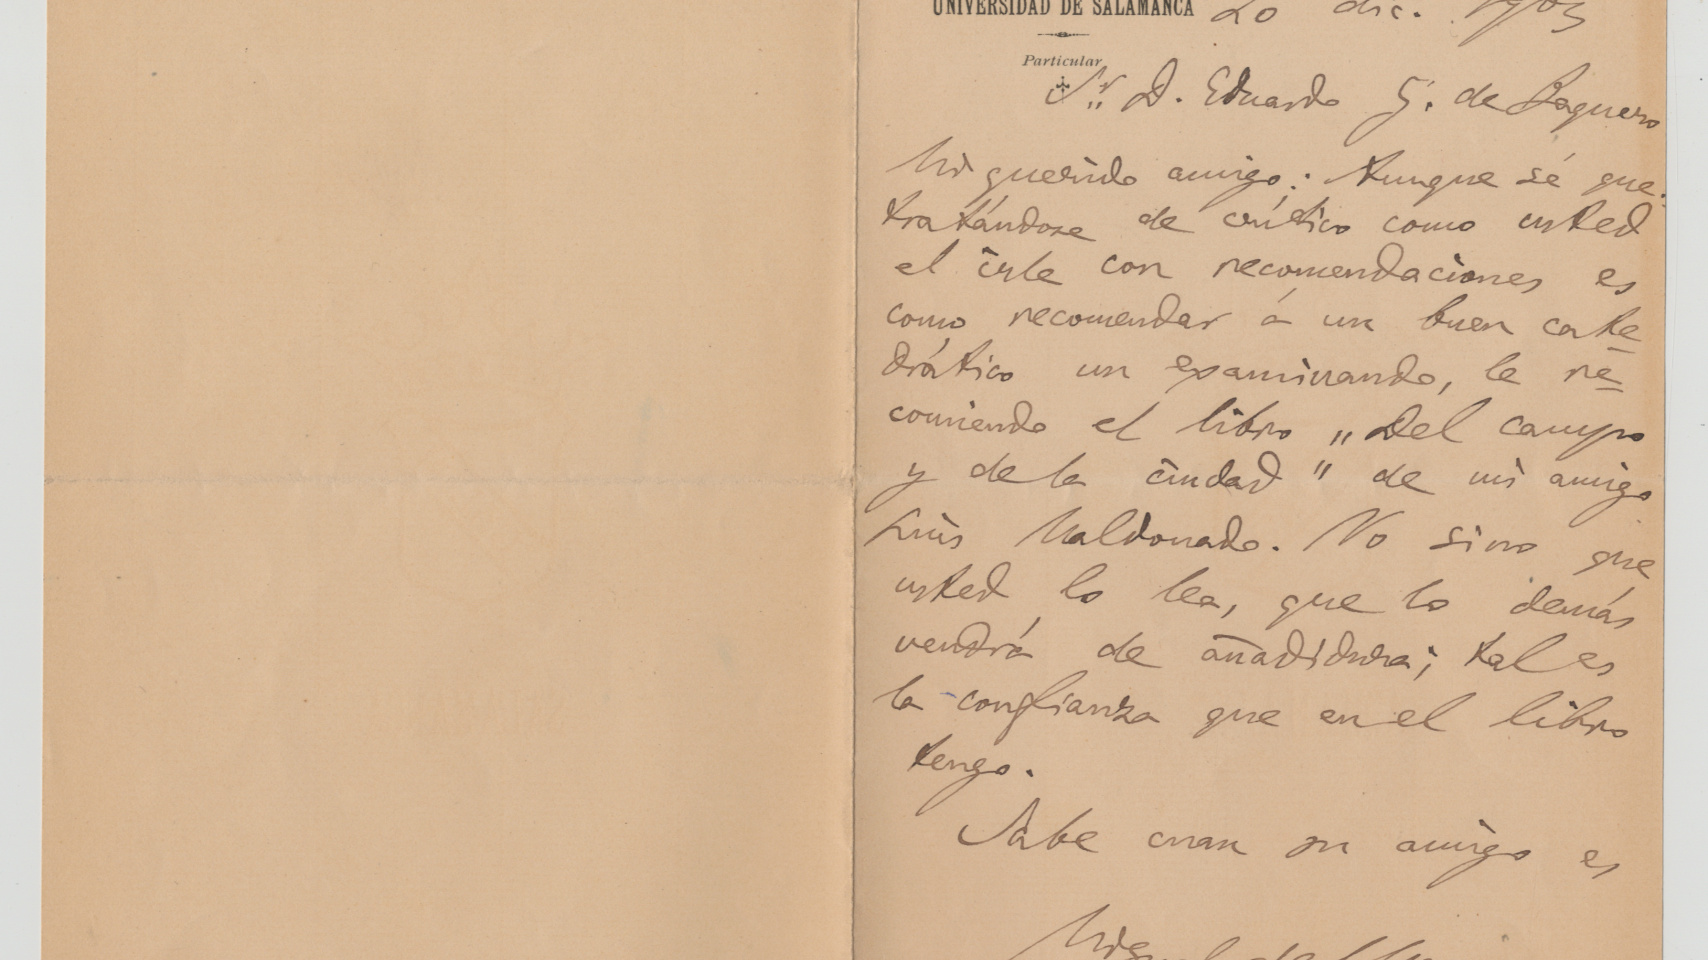 UNIVERSIDAD DE SALAMANCA 20 dic. 1903
Particular
Sr. D. Eduardo G. de Baquero
Mi querido amigo: Aunque sé que
tratándose de crítico como usted
el irle con recomendaciones es
como recomendar á un buen cate
drático un examinando, le re
comiendo el libro "Del campo
y de la ciudad" de mi amigo
Luis Maldonado. No sino que
usted lo lea, que lo demás
vendrá de añadidura; tal es
la confianza que en el libro
tengo.
Sabe cuan su amigo es
Miguel de